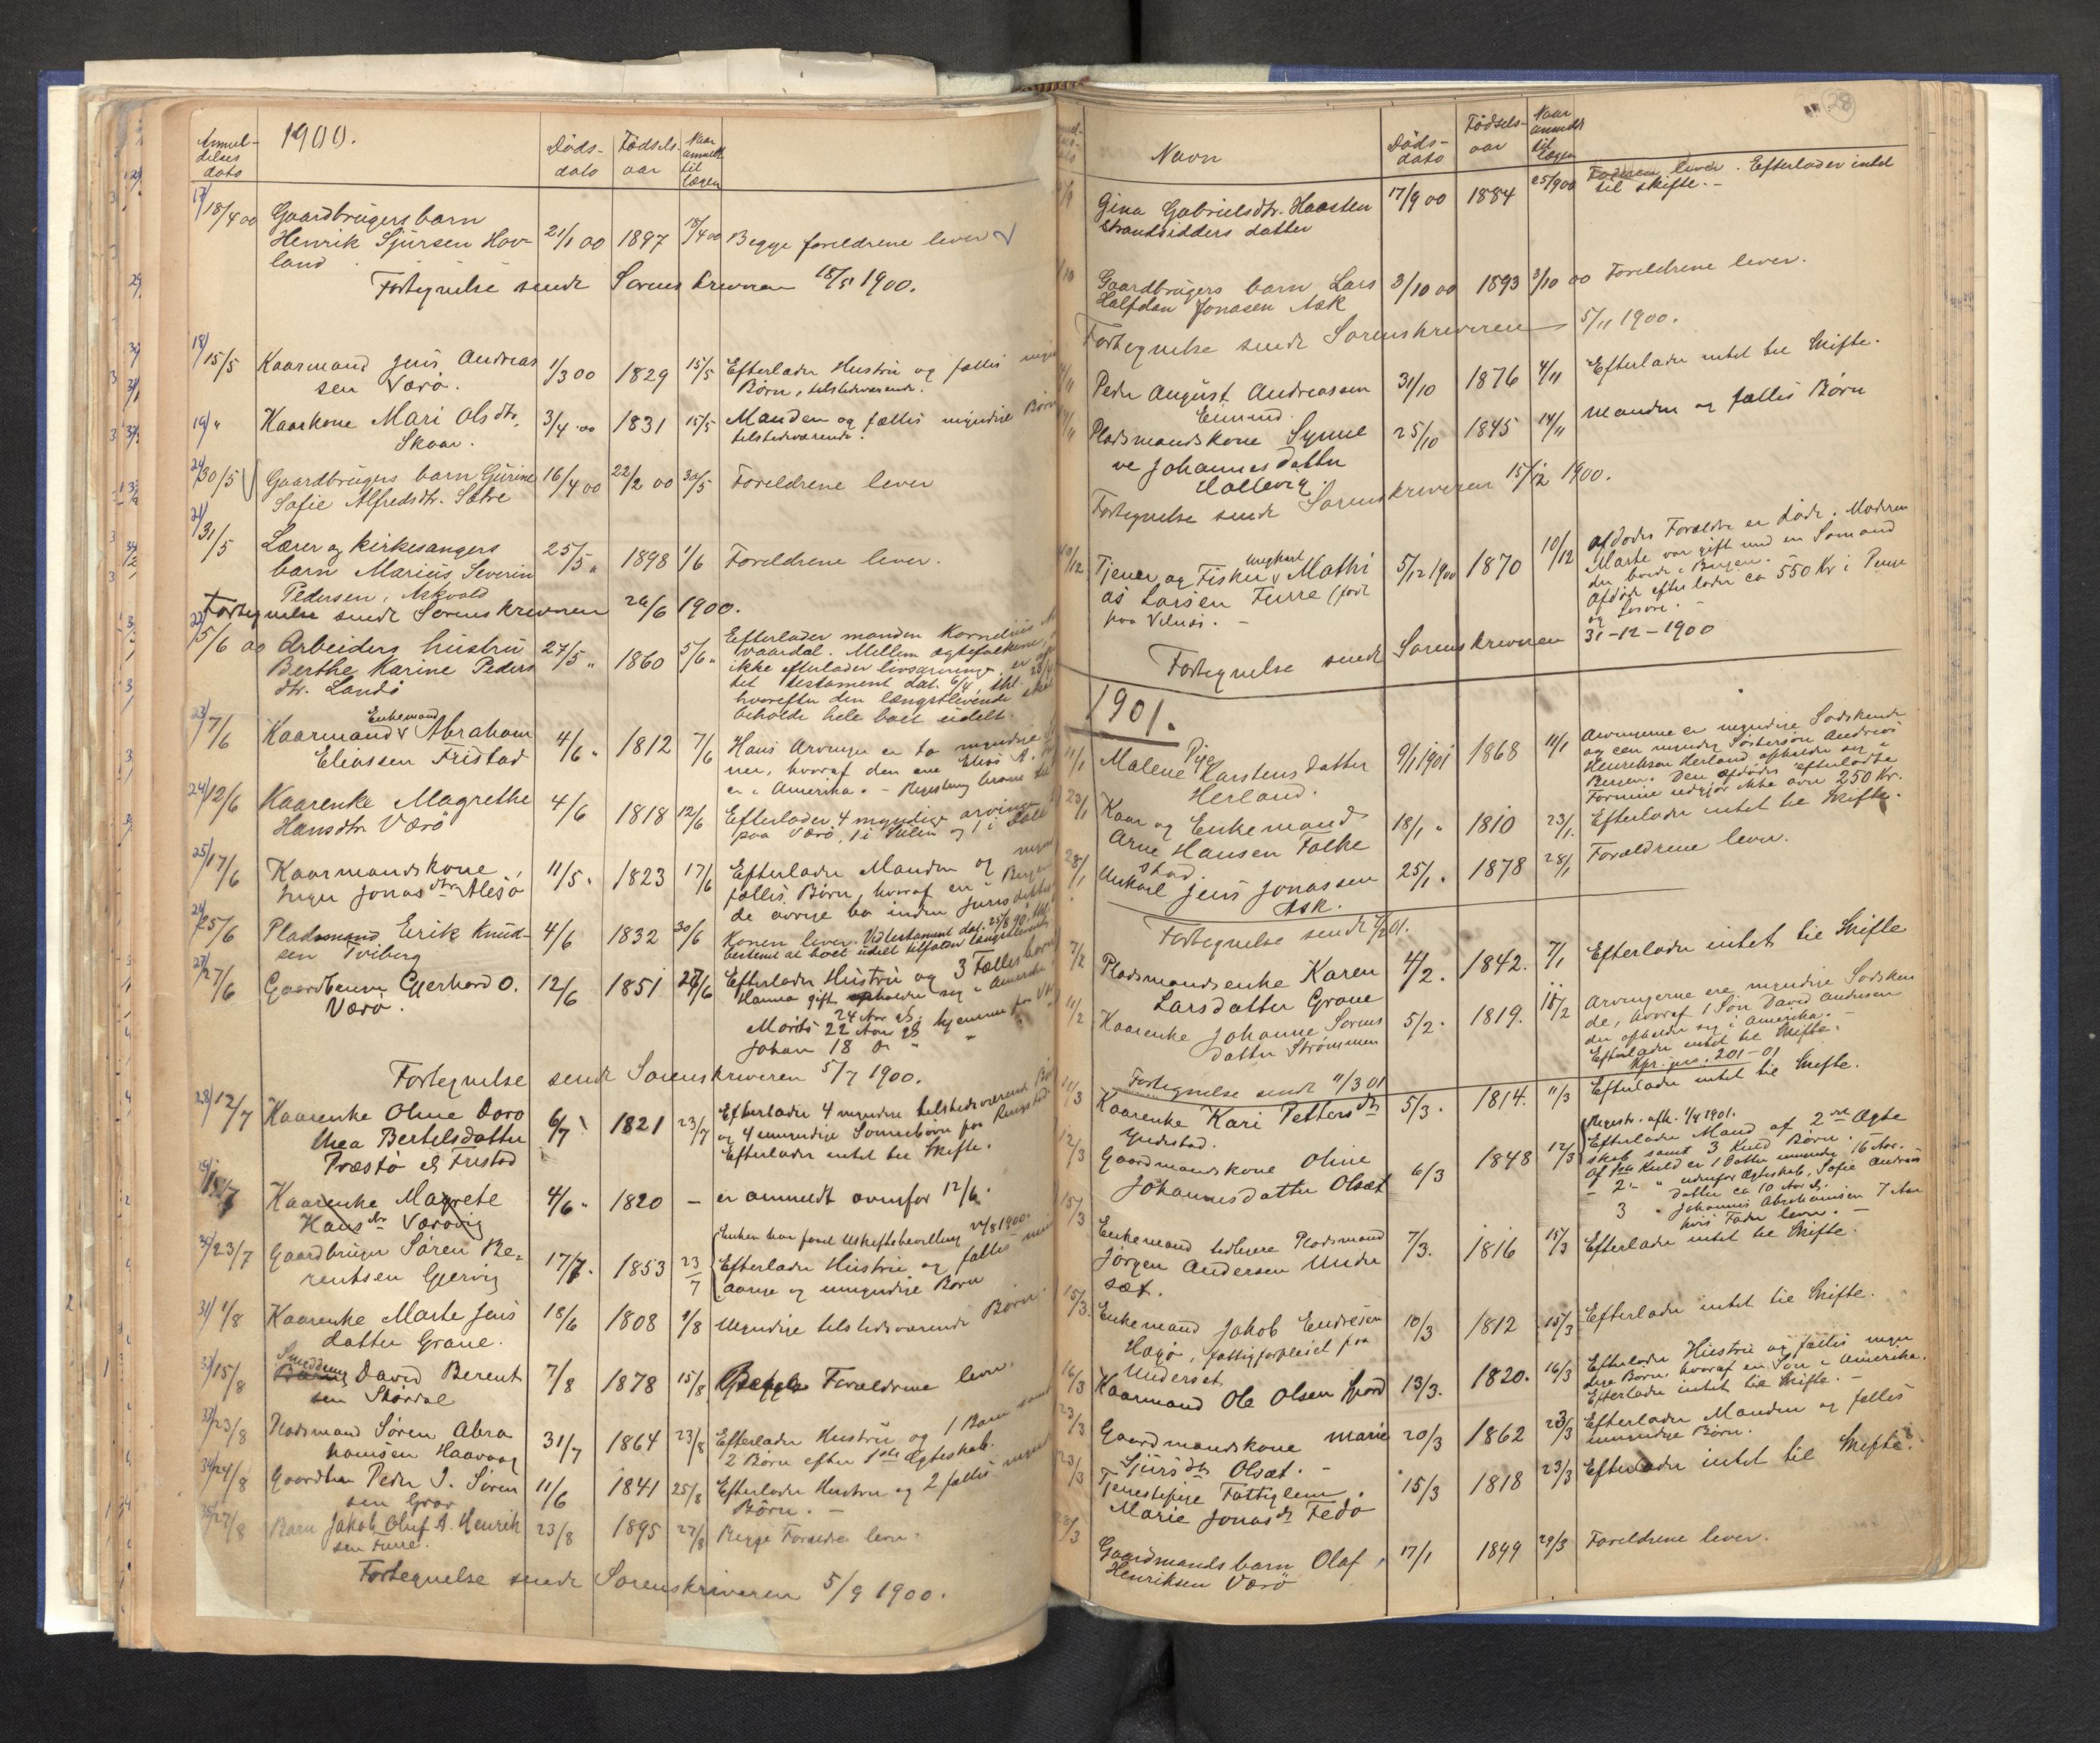 Anmel-
delses
dato
1900.
Døds-
dato
Fødsels-
aar
Naar
anmeldt
til
Lægen
17/
18/4 00
Gaardbrugers barn
Henrik Sjursen Hov-
land
21/1 00
1897
18/4 00
Begge foreldrene lever
Fortegnelse sendt Sorenskriveren 18/5 1900.
18/
15/5
Kaarmand Jens Andreas
sen Værö.
1/3 00
1829
15/5
Efterlader Hustru og fælles
Børn, tilstedeværende.
19/ "
Kaarkone Mari Olsdtr.
Skaar.
3/4 00
1831
15/5
Manden og fælles myndige Børn
tilstedeværende.
20/
30/5
Gaardbrugers barn Gurine
Sofie Alfredsdtr. Sætre
16/4 00
22/2 00
30/5
Foreldrene lever
21/
31/5
Lærer og kirkesangers
barn Marius Severin
Pedersen, Askvold
25/5 "
1898
1/6
Foreldrene lever.
Fortegnelse sendt Sorenskriveren 26/6 1900.
22/
5/6 00
Arbeiders hustru
Berthe Karine Peders
dtr. Landö
27/5 "
1860
5/6 "
Efterlader manden Kornelius
Millem ægtefolkene
ikke efterlader livsarvinger er
tet testament dat. 6/4
hvorefter den længstlevende skal
beholde hele boet udelt.
23/
7/6
Enkemand
Kaarmand Abraham
Eliassen Fristad
4/6 "
1812
7/6
Hans Arvinger er to myndige
ner, hvoraf den ene Elias A.
er i Amerika. -
24/
12/6
Kaarenke Magrethe
Hansdtr Værö
4/6
1818
12/6
Efterlader 4 myndige arvinger
paa Værö, 1 i og 1 i
25/
17/6
Kaarmandskone
Inger Jonasdtr Alesö
11/5 "
1823
17/6
Efterlader Manden og
fælles Børn, hvoraf en i Bergen
de øvrige bo inden
26/
25/6
Pladsmand Erik Knud-
sen Tviberg
4/6
1832
30/6
Konen lever. Ved testament dat. 25/8 90
bestemt at boet udelt tilfalder længstlevende
27/
27/6
Gaardbruger Gjerhard O.
Værö.
12/6
1851
27/6
Efterlader Hustru og 3 Fællesbørn
Hanna gift opholder sig i Amerika
24 Aar gl.
Morits 22 Aar gl. hjemme paa
Johan 18 Aar " "
Fortegnelse sendt Sorenskriveren 5/7 1900.
28/
12/7
Kaarenke Oline Doro
thea Bertelsdatter
Præstö af Fristad
6/7
1821
23/7
Efterlader 4 myndige tilstedeværende
og 4 umyndige Sønnebørn paa
Efterlader intet til Skifte.
29/
12/7
Kaarenke Magrete
Hansdtr Værövig
4/6 "
1820
-
er anmeldt ovenfor 12/6.
30/
23/7
Gaardbruger Søren Be-
rentsen Gjervig
17/7.
1853
23/7
Enken har faaet Uskiftebevilling 24/8 1900.
Efterlader Hustru og fælles
aarige og umyndige Børn
31/
1/8
Kaarenke Marte Jens
datter Grane.
18/6
1808
1/8
Myndige tilstedeværende Børn.
32/
15/8
David Berent
sen Stórdal
7/8
1878
15/8
Begge Foreldrene lever.
33/
23/8
Pladsmand Søren Abra
hamsen Haavaag
31/7
1864
23/8
Efterlader Hustru og 1 Barn samt
2 Børn efter 1ste Ægteskab.
34/
24/8
Gaardbr. Peder J. Søren
sen Grov
11/6
1841
25/8
Efterlader Hustru og 2 fælles
Børn. -
35/
27/8
Barn Jakob Oluf A. Henrik
sen Furre.
23/8
1895
27/8
Begge Foreldre lever.
Fortegnelse sendt Sorenskriveren 5/9 1900.
28
Navn
Døds-
dato
Fødsels-
aar
Naar
anmeldt
til
Lægen
Gina Gabrielsdtr. Haasten
Strandsidders datter
17/9 00
1884
25/9 00
Faderen lever. Efterlader intet
til skifte. -
Gaardbrugers barn Lars
Halfdan Jonasen Ask
3/10 00
1893
3/10 00
Foreldrene lever.
Fortegnelse sendt Sorenskriveren 5/11 1900.
Peder August Andreassen
Eimind.
31/10
1876
4/11
Efterlader intet til Skifte.
Pladsmandskone Synne
ve Johannesdatter
Hallevig.
25/10
1845
14/11
Manden og fælles Børn
Fortegnelse sendt Sorenskriveren 15/12 1900.
10/12
ungkarl
Tjener og Fisker Mathi
as Larsen Furre (født
paa Vilnæs. -
5/12 1900
1870
10/12
Afdødes Foreldre er døde. Moderen
Marte var gift med en Sømand
der boede i Bergen.
Afdøde efterlader ca 550 Kr i Penge
og Løsøre. -
Fortegnelse sendt Sorenskriveren 31-12-1900
1901.
11/1
Pige
Malene Karstensdatter
Herland.
9/1 1901
1868
11/1
Arvingerne er myndige Sødskende
og een myndig Søstersøn Andreas
Henriksen Herland opholder sig i
Bergen. Den Afdødes efterladte
Formue udgjør ikke over 250 Kr.
23/1
Kaar og Enkemand
Arne Hansen Folke
stad.
18/1 "
1810
23/1.
Efterlader intet til Skifte.
28/1
Unkarl Jens Jonassen
Ask.
25/1 "
1878
28/1
Foreldrene lever.
Fortegnelse sendt 7/2 01.
7/2
Pladsmandsenke Karen
Larsdatter Grane
4/2.
1842.
7/1
Efterlader intet til Skifte
11/2
Kaarenke Johanne Sørens
datter Strømmen
5/2.
1819.
11/2
Arvingerne ere myndige Sødsken
de, hvoraf 1 Søn David Andersen
der opholder sig i Amerika. -
Efterlader intet til Skifte.
Kpr. jrn. 201-01
Fortegnelse sendt 11/3 01
11/3
Kaarenke Kari Pettersdtr
Yndestad.
5/3.
1814.
11/3
Efterlader intet til Skifte.
12/3
Gaardmandskone Oline
Johannesdatter Olsæt
6/3
1848
12/3
Registr. afh. 1/4 1901.
Efterlader Mand af 2det Ægte
skab samt 3 Kuld Børn.
Af 1ste Kuld er 1 Datter umyndig 16 Aar. -
- 2 - " udenfor Ægteskab, Sofie Andreas
datter ca 10 Aar gl.
3 " Johannes Abrahamsen 7 Aar
hvis Fader lever. -
15/3
Enkemand tidligere Pladsmand
Jørgen Andersen Under
sæt.
7/3.
1816
15/3
Efterlader intet til Skifte.
15/3.
Enkemand Jakob Endresen
Hagö, fattigforpleiet paa
Underset
10/3
1812
15/3
Efterlader intet til Skifte.
16/3
Kaarmand Ole Olsen Fjord
13/3.
1820.
16/3
Efterlader Hustru og fælles myn
dige Børn, hvoraf en Søn i Amerika.
Efterlader intet til Skifte. -
23/3
Gaardmandskone Marie
Sjursdtr Olsæt. -
20/3
1862
23/3
Efterlader Manden og fælles
umyndige Børn.
23/3
Tjenestepige Fattiglem.
Marie Jonasdtr Fedo
15/3
1818
23/3
Efterlader intet til Skifte.
Gaardmandsbarn Olaf
Henriksen Værö
17/1
1899
29/3
Foreldrene lever.